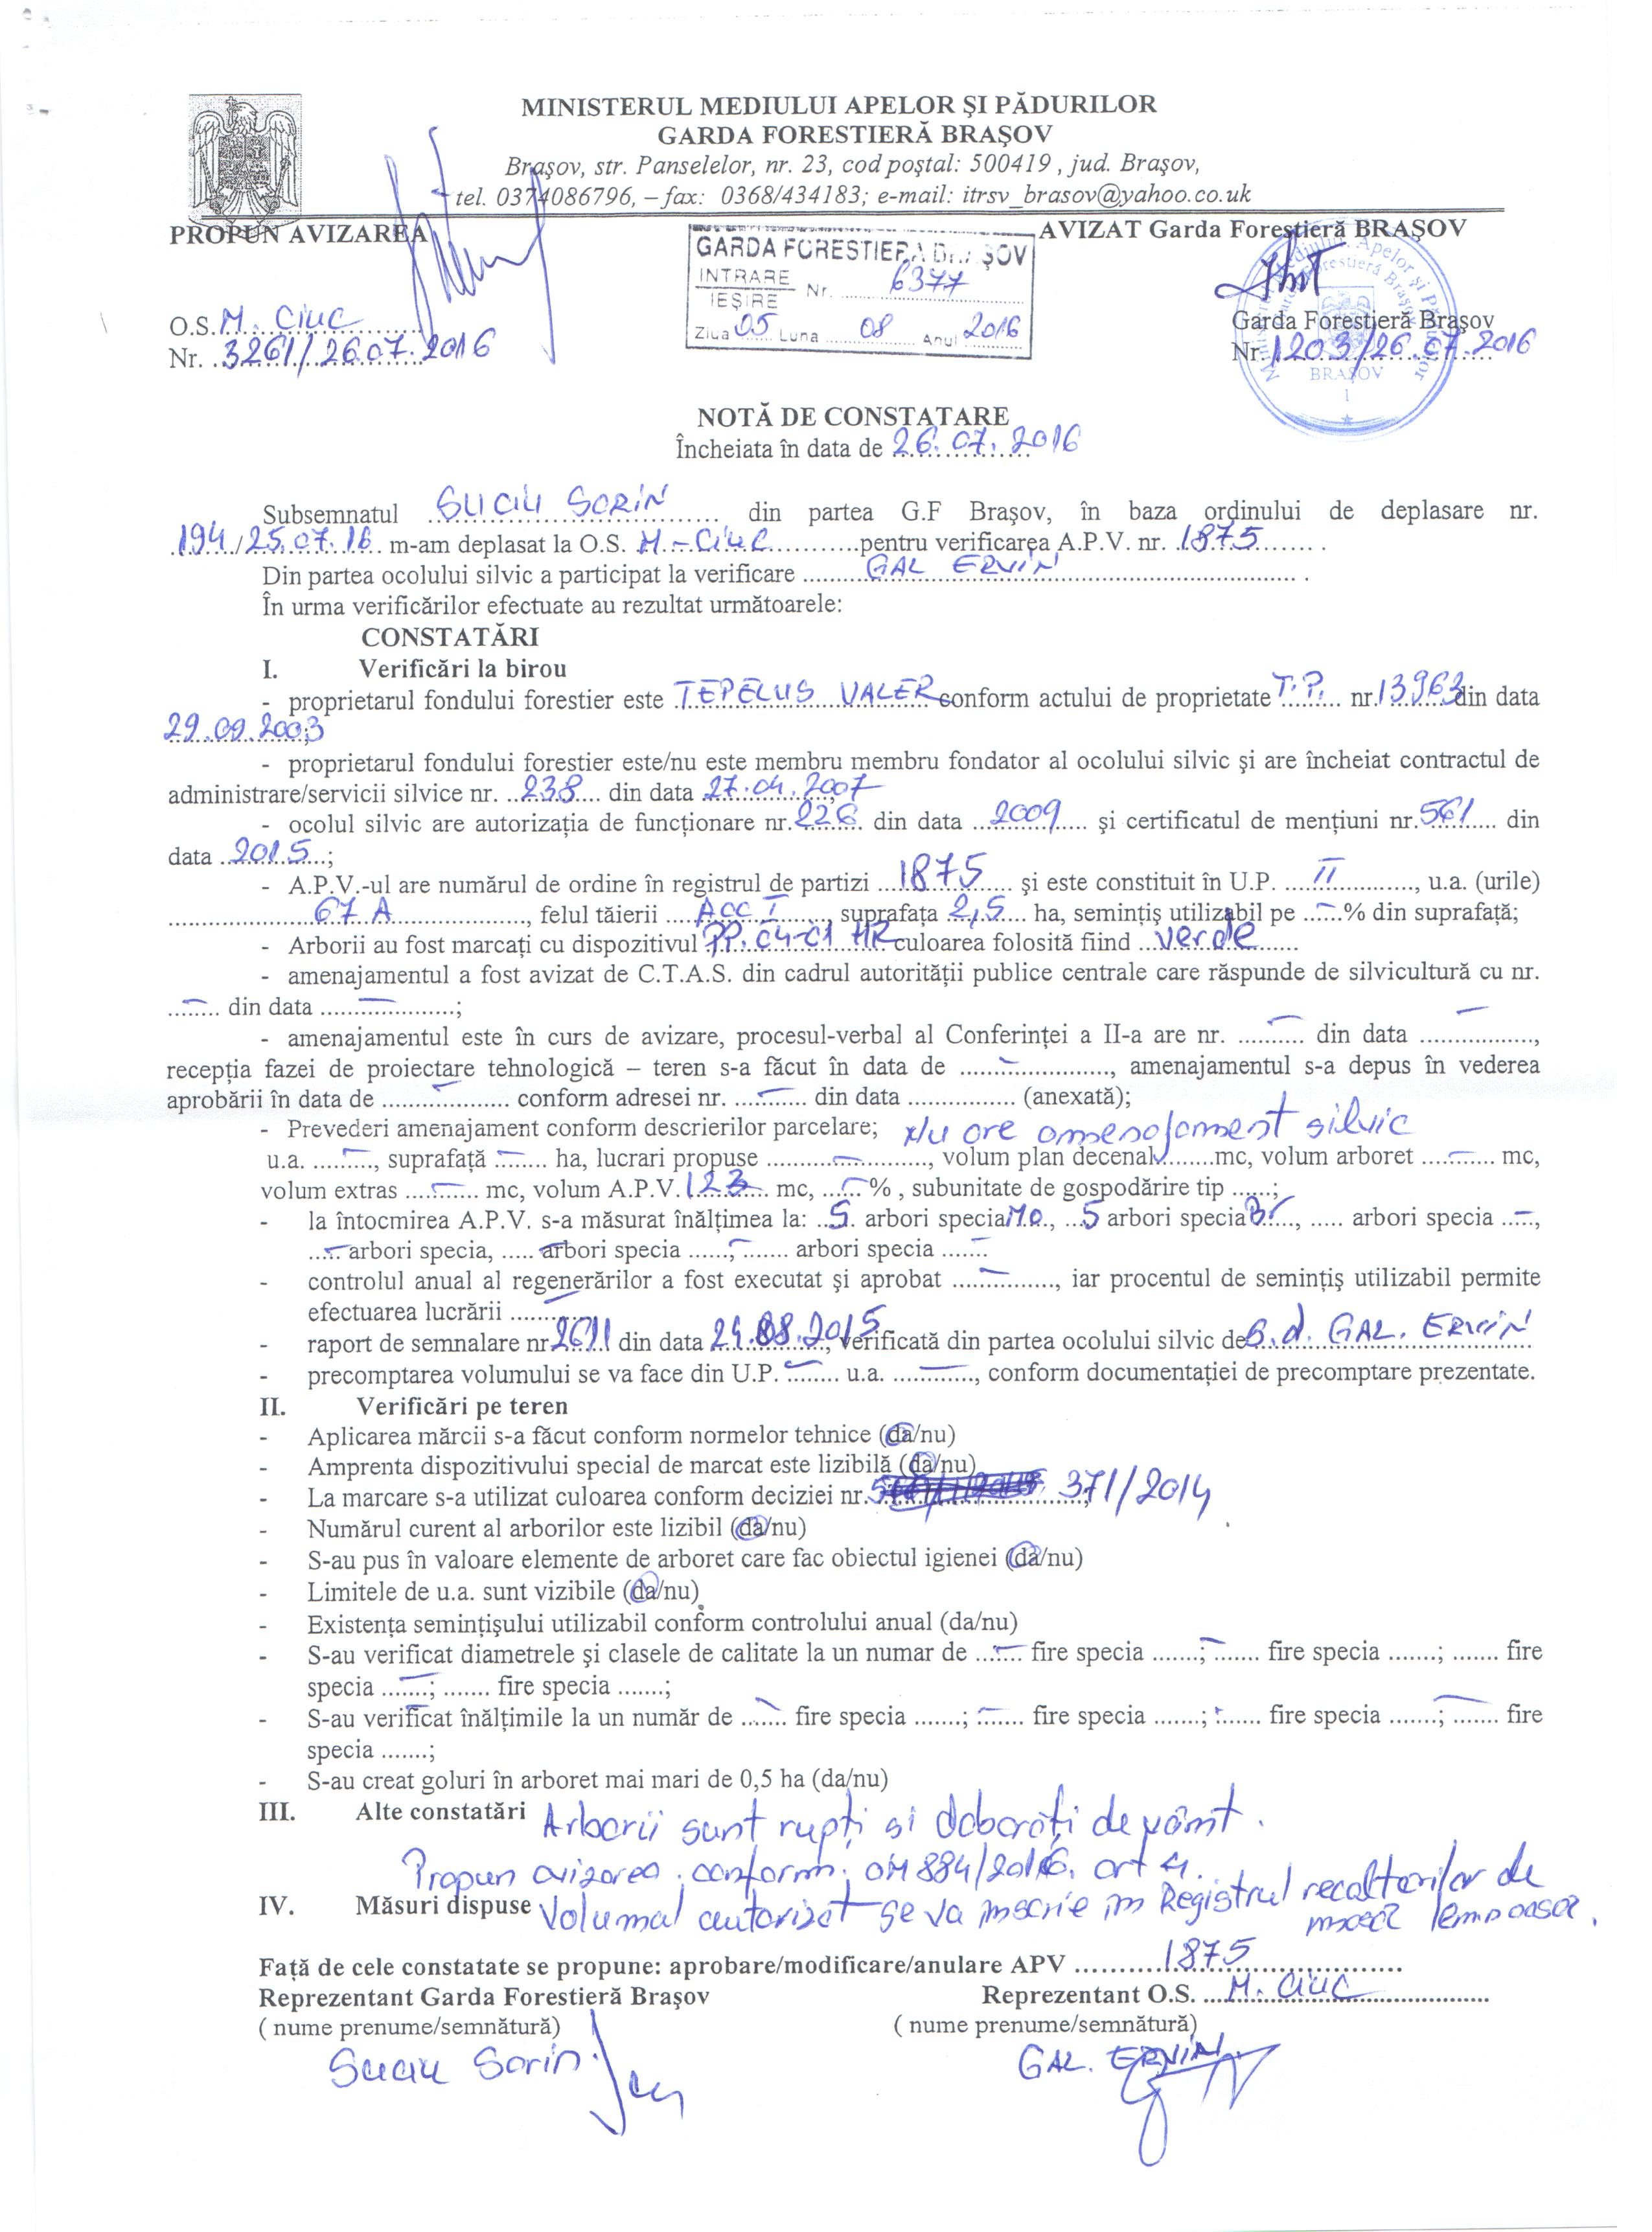 MINISTERUL MEDIULUI APELOR ŞI PĂDURILOR
GARDA FORESTIERĂ BRAŞOV
Braşov, str. Panselelor, nr. 23, cod poştal: 500419 , jud. Braşov,
tel. 0374086796, – fax: 0368/434183; e-mail: itrsv_brasov@yahoo.co.uk
PROPUN AVIZAREA
AVIZAT Garda Forestieră BRAŞOV
GARDA FORESTIERA BRAŞOV
INTRARE
IEŞIRE Nr. 6377
Ziua 05 Luna 08 Anul 2016
O.S. M. CIUC
Nr. 3261/26.07.2016
Garda Forestieră Braşov
Nr. 1203/26.07.2016
BRAŞOV
1
NOTĂ DE CONSTATARE
Încheiata în data de 26.07.2016
Subsemnatul SUCIU SORIN din partea G.F Braşov, în baza ordinului de deplasare nr.
194/25.07.16 m-am deplasat la O.S. M-CIUC pentru verificarea A.P.V. nr. 1875 .
Din partea ocolului silvic a participat la verificare GAL ERVIN .
În urma verificărilor efectuate au rezultat următoarele:
CONSTATĂRI
I. Verificări la birou
- proprietarul fondului forestier este TEPELUS VALER conform actului de proprietate T.P. nr. 13963 din data
29.09.2003;
- proprietarul fondului forestier este/nu este membru membru fondator al ocolului silvic şi are încheiat contractul de
administrare/servicii silvice nr. 238 din data 27.04.2007
- ocolul silvic are autorizaţia de funcţionare nr. 226 din data 2009 şi certificatul de menţiuni nr. 561 din
data 2015;
- A.P.V.-ul are numărul de ordine în registrul de partizi 1875 şi este constituit în U.P. II, u.a. (urile)
67 A, felul tăierii ACC I, suprafaţa 2,5 ha, seminţiş utilizabil pe –% din suprafaţă;
- Arborii au fost marcaţi cu dispozitivul PP. C4-C1 HR culoarea folosită fiind verde
- amenajamentul a fost avizat de C.T.A.S. din cadrul autorităţii publice centrale care răspunde de silvicultură cu nr.
– din data –;
- amenajamentul este în curs de avizare, procesul-verbal al Conferinţei a II-a are nr. – din data –,
recepţia fazei de proiectare tehnologică – teren s-a făcut în data de –, amenajamentul s-a depus în vederea
aprobării în data de – conform adresei nr. – din data ................ (anexată);
- Prevederi amenajament conform descrierilor parcelare; Nu are amenajament silvic
u.a. –, suprafaţă – ha, lucrari propuse –, volum plan decenal ........mc, volum arboret – mc,
volum extras – mc, volum A.P.V. 123 mc, –% , subunitate de gospodărire tip ......;
- la întocmirea A.P.V. s-a măsurat înălţimea la: 5 arbori specia MO, 5 arbori specia Br, ..... arbori specia –,
– arbori specia, ..... arbori specia ......, – arbori specia –
- controlul anual al regenerărilor a fost executat şi aprobat –, iar procentul de seminţiş utilizabil permite
efectuarea lucrării –
- raport de semnalare nr. 2611 din data 24.08.2015, verificată din partea ocolului silvic de s.d. GAL. ERVIN
- precomptarea volumului se va face din U.P. – u.a. –, conform documentaţiei de precomptare prezentate.
II. Verificări pe teren
- Aplicarea mărcii s-a făcut conform normelor tehnice (da/nu)
- Amprenta dispozitivului special de marcat este lizibilă (da/nu)
- La marcare s-a utilizat culoarea conform deciziei nr. 371/2014
- Numărul curent al arborilor este lizibil (da/nu)
- S-au pus în valoare elemente de arboret care fac obiectul igienei (da/nu)
- Limitele de u.a. sunt vizibile (da/nu)
- Existenţa seminţişului utilizabil conform controlului anual (da/nu)
- S-au verificat diametrele şi clasele de calitate la un numar de – fire specia .......; – fire specia .......; ....... fire
specia –; ....... fire specia .......;
- S-au verificat înălţimile la un număr de – fire specia .......; – fire specia .......; – fire specia .......; – fire
specia .......;
- S-au creat goluri în arboret mai mari de 0,5 ha (da/nu)
III. Alte constatări Arborii sunt rupţi si doborâţi de vânt.
Propun avizarea, conform OM 884/2016, art 4.
IV. Măsuri dispuse Volumul autorizat se va inscrie in Registrul recoltarilor de
masa lemnoasa.
Faţă de cele constatate se propune: aprobare/modificare/anulare APV 1875
Reprezentant Garda Forestieră Braşov
Reprezentant O.S. M. CIUC
( nume prenume/semnătură)
( nume prenume/semnătură)
Suciu Sorin
GAL. ERVIN